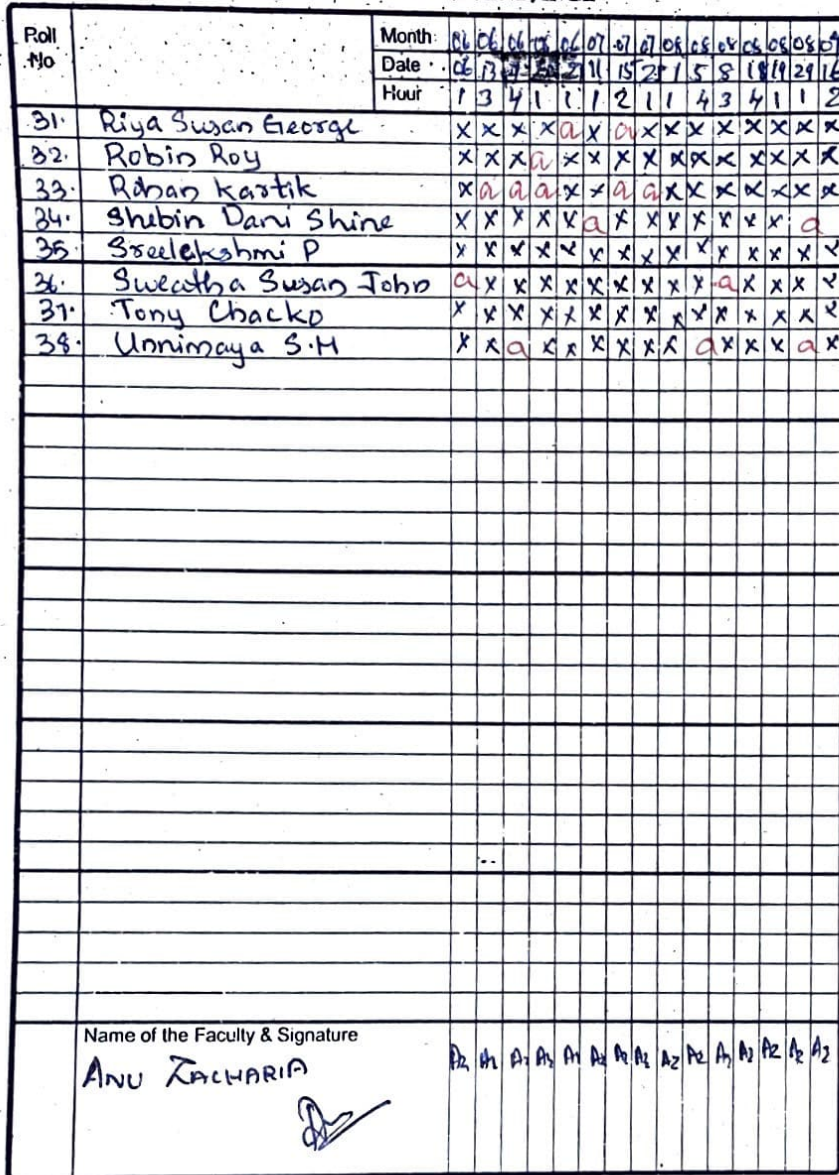 Roll No Month: 06 06 06 06 06 07 07 07 08 08 08 08 08 08 09
Date 06 13 11 15 1 5 8 18 19 29 16
Hour 1 3 4 1 1 1 2 1 1 4 3 4 1 1 2
31. Riya Susan George x x x x a x a x x x x x x x x
32. Robin Roy x x x a x x x x x x x x x x x
33. Rohan Kartik x a a a x x a a x x x x x x x
34. Shebin Dani Shine x x x x x a x x x x x x x a
35. Sreelekshmi P x x x x x x x x x x x x x x x
36. Sweatha Susan John a x x x x x x x x x a x x x x
37. Tony Chacko x x x x x x x x x x x x x x x
38. Unnimaya S.H x x a x x x x x x a x x x a x
Name of the Faculty & Signature
ANU ZACHARIA AZ AZ AZ AZ AZ AZ AZ AZ AZ AZ AZ AZ AZ AZ AZ